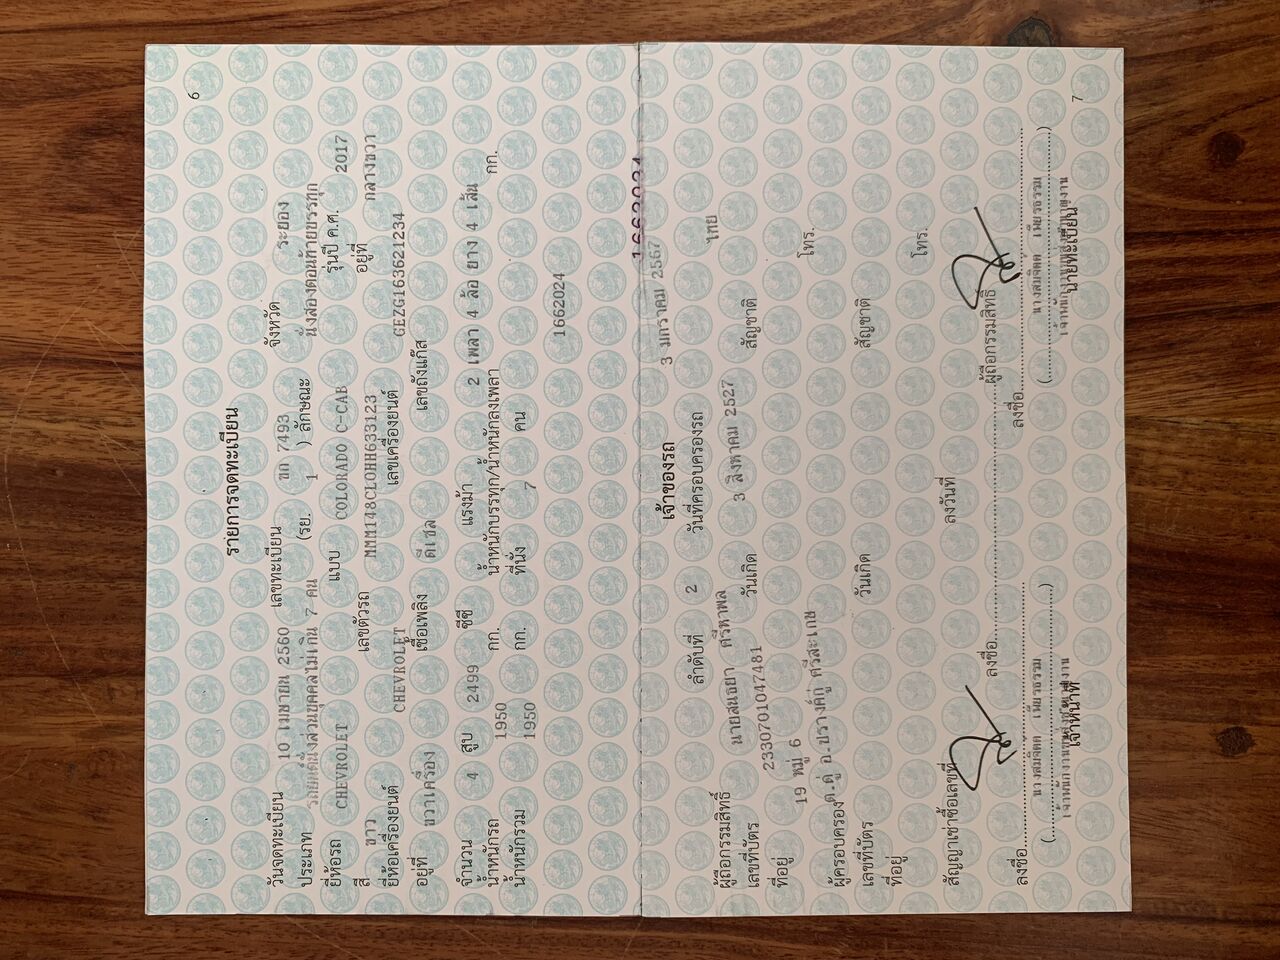 6
รายการจดทะเบียน
วันจดทะเบียน 10 เมษายน 2560 เลขทะเบียน ผก 7493 จังหวัด ระยอง
ประเภท รถยนต์นั่งส่วนบุคคลไม่เกิน 7 คน (รย. 1 ) ลักษณะ นั่งสองตอนท้ายบรรทุก
ยี่ห้อรถ CHEVROLET แบบ COLORADO C-CAB รุ่นปี ค.ศ. 2017
สี ขาว เลขตัวรถ MMM148CLOHH633123 อยู่ที่ กลางขวา
ยี่ห้อเครื่องยนต์ CHEVROLET เลขเครื่องยนต์ GEZG163621234
อยู่ที่ ขวาเครื่อง เชื้อเพลิง ดีเซล เลขถังแก๊ส
จำนวน 4 สูบ 2499 ซีซี แรงม้า 2 เพลา 4 ล้อ ยาง 4 เส้น
น้ำหนักรถ 1950 กก. น้ำหนักบรรทุก/น้ำหนักลงเพลา กก.
น้ำหนักรวม 1950 กก. ที่นั่ง 7 คน
1662024
1662024
เจ้าของรถ 3 มกราคม 2567
ลำดับที่ 2 วันที่ครอบครองรถ
ผู้ถือกรรมสิทธิ์ นายสนธยา ศรีหาพล ไทย
เลขที่บัตร 2330701047481 วันเกิด 3 สิงหาคม 2527 สัญชาติ
ที่อยู่ 19 หมู่ 6
โทร.
ผู้ครอบครอง ต.ตู อ.ปรางค์กู่ ศรีสะเกษ
เลขที่บัตร วันเกิด สัญชาติ
ที่อยู่
โทร.
สัญญาเช่าซื้อเลขที่ ลงวันที่
ลงชื่อ ผู้ถือกรรมสิทธิ์
ลงชื่อ ลงชื่อ
( นางสมจิตต เพียรธรรม ) ( นางสมจิตต เพียรธรรม )
เจ้าหน้าที่ นายทะเบียน
7